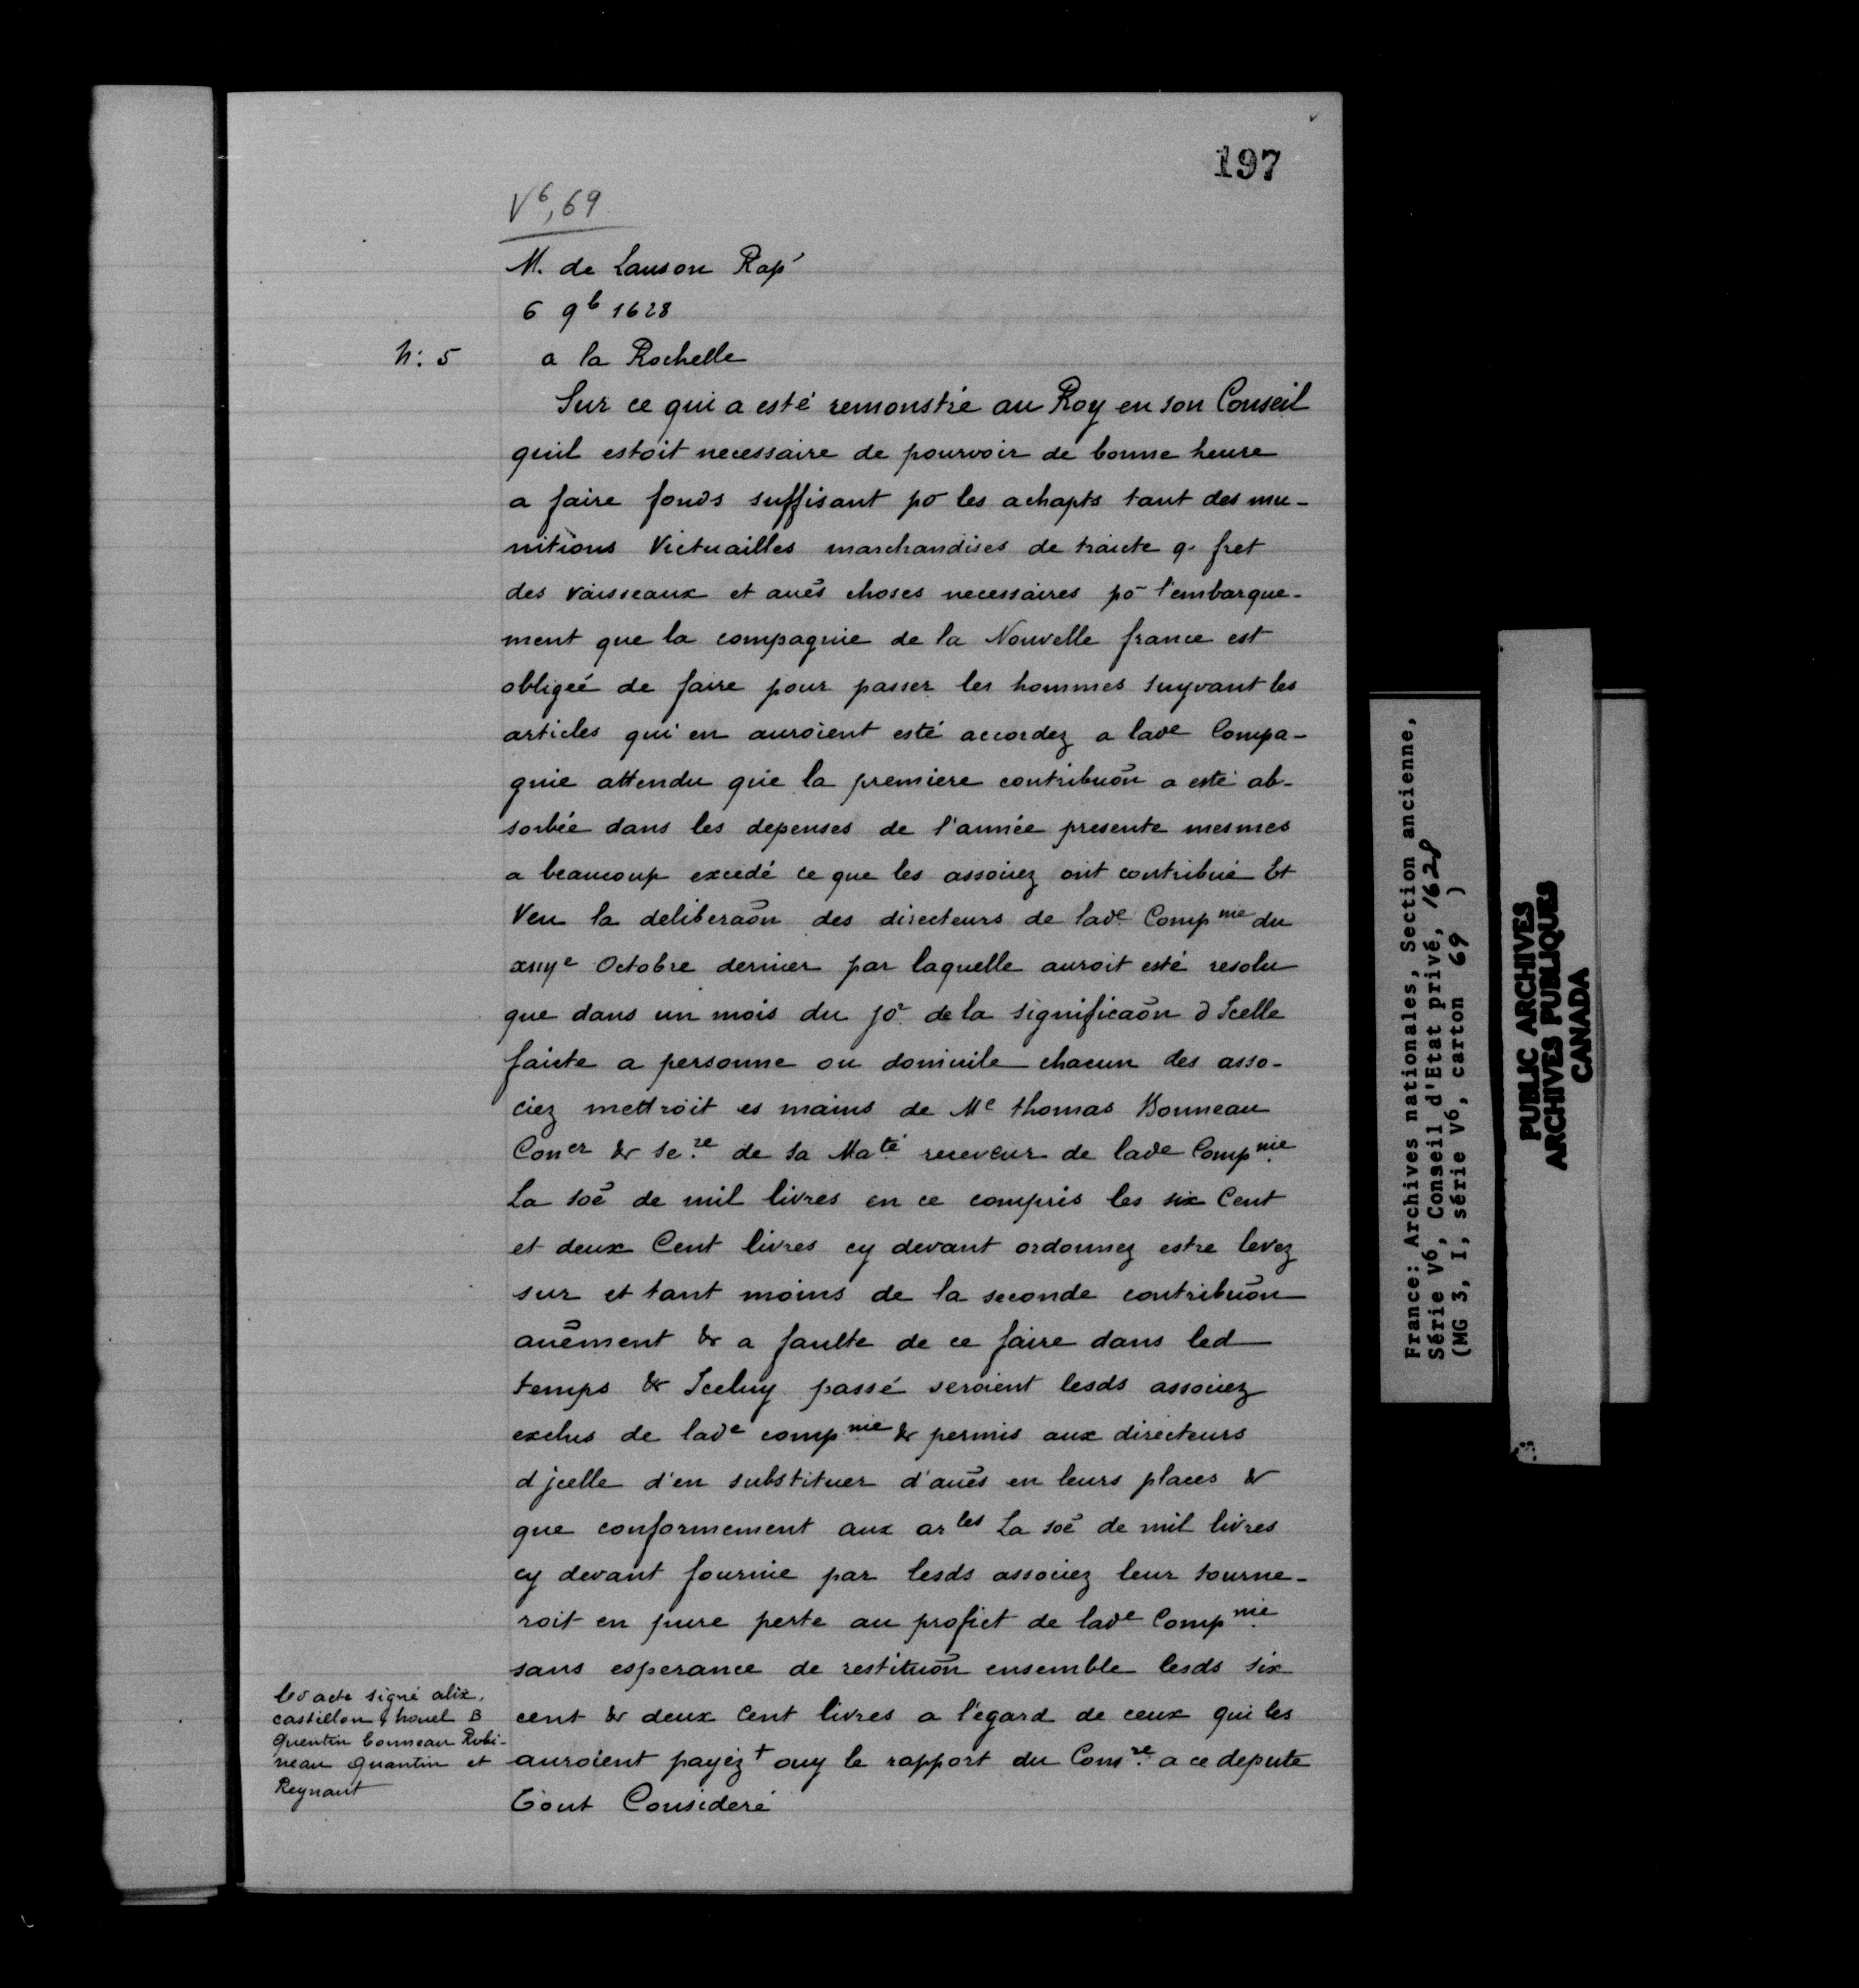 197
V⁶, 69
M. de Lauson Rap^r
6 9^b 1628
n: 5
a la Rochelle
Sur ce qui a esté remonstré au Roy en son Conseil
quil estoit necessaire de pourvoir de bonne heure
a faire fonds suffisant pō les achapts tant des mu-
nitions Victuailles marchandises de traicte q. fret
des vaisseaux et auēs choses necessaires pō l'embarque-
ment que la compagnie de la Nouvelle france est
obligeé de faire pour passer les hommes suyvant les
articles qui en auroient esté accordez a lad^e Compa-
gnie attendu que la premiere contribuōn a esté ab-
sorbée dans les depenses de l'année presente mesmes
a beaucoup excedé ce que les associez ont contribué Et
Veu la deliberaōn des directeurs de lad^e Comp^nie du
xiiij^e Octobre dernier par laquelle auroit esté resolu
que dans un mois du jo^r de la significaōn d Icelle
faicte a personne ou domicile chacun des asso-
ciez mettroit es mains de M^e thomas Bonneau
Con^er & se^re de sa Ma^té receveur de lad^e Comp^nie
La soē de mil livres en ce compris les six Cent
et deux Cent livres cy devant ordonnez estre levez
sur et tant moins de la seconde contribuōn
auēment & a faulte de ce faire dans led
temps & Iceluy passé seroient lesds associez
exclus de lad^e comp^nie & permis aux directeurs
d jcelle d'en substituer d'auēs en leurs places &
que conformement aux ar^les La soē de mil livres
cy devant fournie par lesds associez leur tourne-
roit en pure perte au profict de lad^e Comp^nie
sans esperance de restituōn ensemble lesds six
cent & deux Cent livres a l'égard de ceux qui les
auroient payéz + ouy le rapport du Coms^re a ce depute
Tout Consideré
led acte signé alix,
castillon, houel B
Quentin bonneau Robi-
neau Quantin et
Reynaut
France: Archives nationales, Section ancienne,
Série V6, Conseil d'Etat privé, 1628
(MG 3, I, série V6, carton 69 )
PUBLIC ARCHIVES
ARCHIVES PUBLIQUES
CANADA